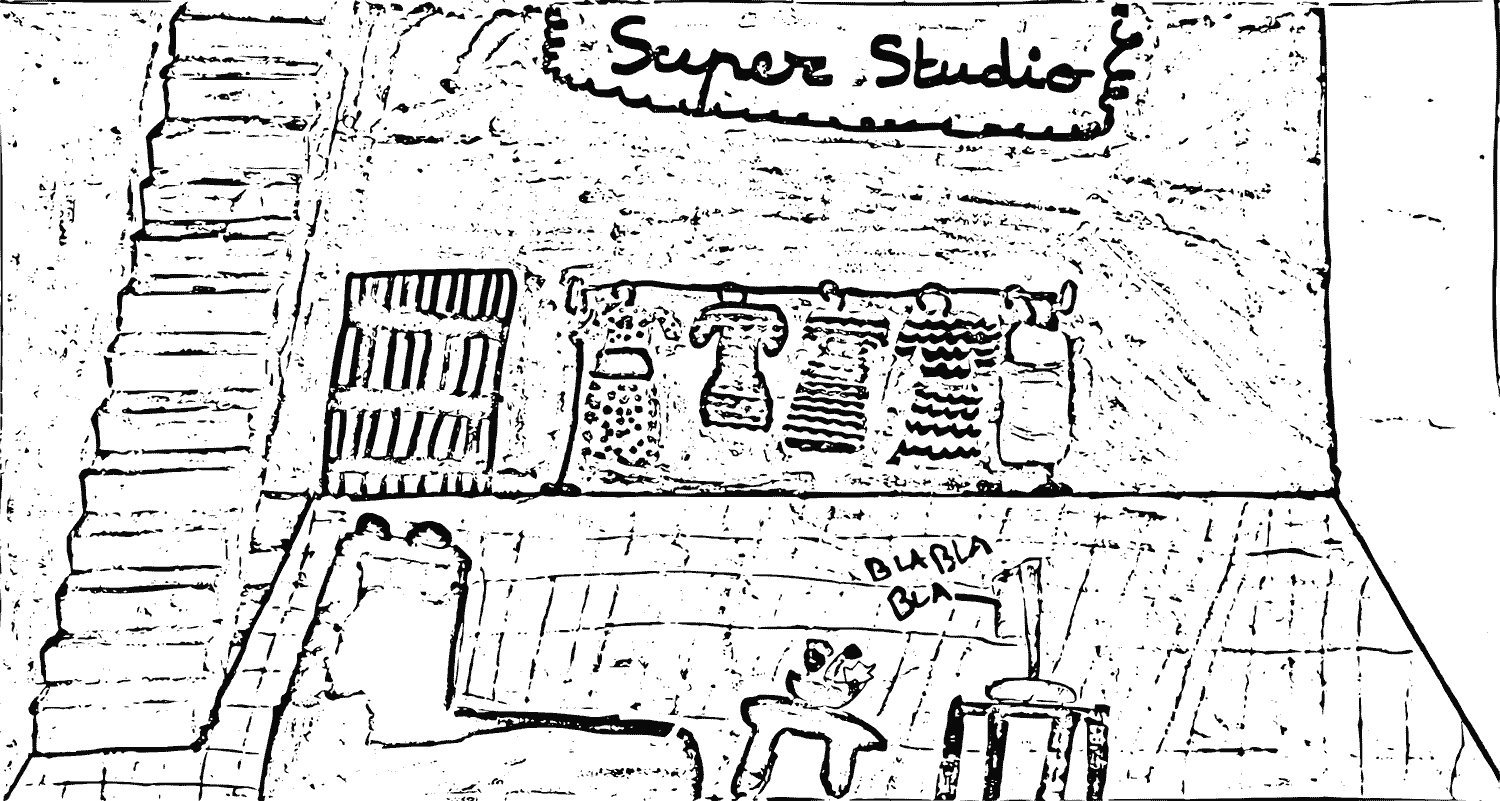 Super Studio
BLA BLA
BLA